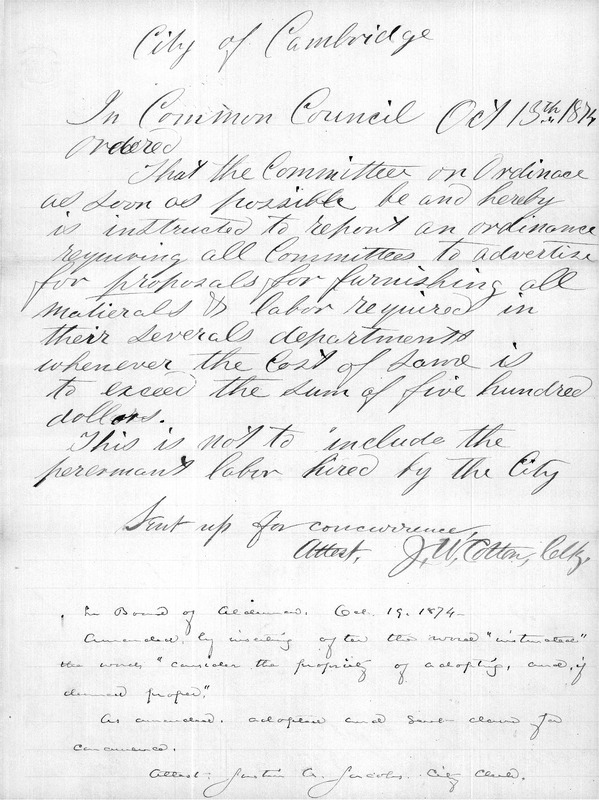 City of Cambridge
In Common Council Oct 13th 1874
Ordered
That the Committee on Ordinace
as soon as possible be and hereby
is instructed to report an ordinance
requiring all Committees to advertise
for proposals for furnishing all
matierals & labor required in
their severals departments
whenever the cost of same is
to exceed the sum of five hundred
dollars.
This is not to include the
peremant labor hired by the City
Sent up for concurrence
Attest, J. W. Cotton, Clk.
In Board of Aldermen. Oct. 19. 1874.
Amended by inserting after the word "instructed"
the words "consider the propriety of adopting, and, if
deemed proper."
As amended, adopted and sent down for
concurrence.
Attest: Justin A. Jacobs. City Clerk.